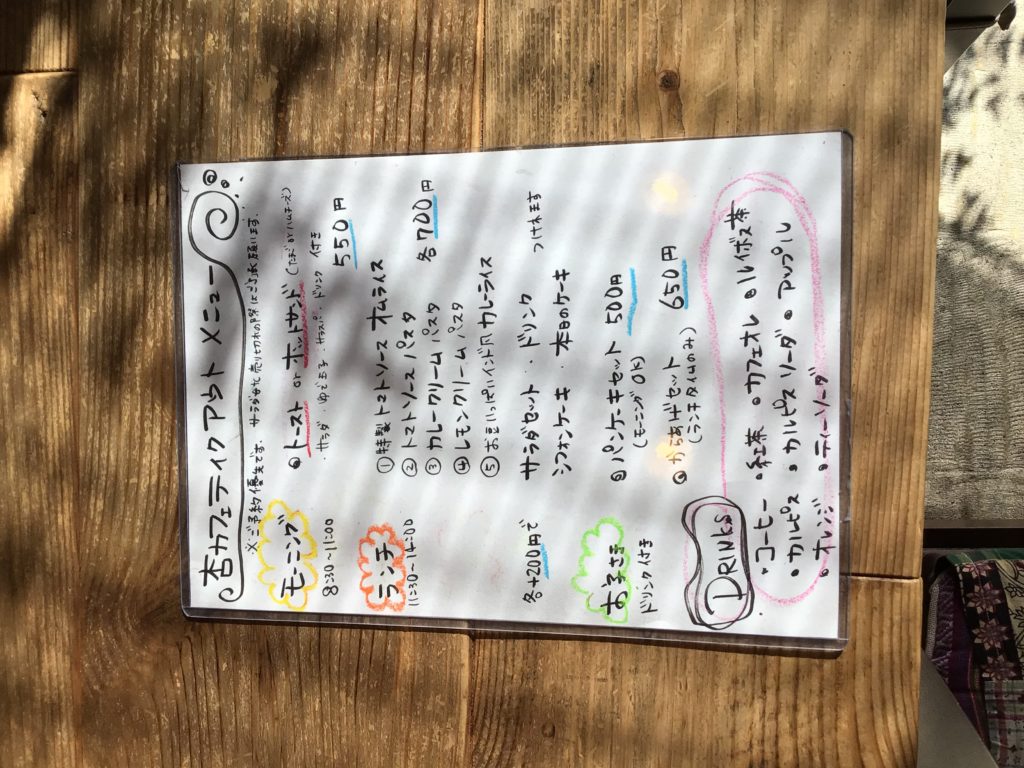 杏カフェテイクアウト メニュー
※ご予約優先です。サラダなど売り切れの際はご了承願います。
モーニング
8:30～11:00
トースト or ホットサンド (たまご or ハムチーズ)
・サラダ ・ゆで玉子 ・サラスパ ・ドリンク 付き
550円
ランチ
11:30～14:00
① 特製トマトソース オムライス
② トマトソース パスタ
③ カレークリーム パスタ
④ レモンクリーム パスタ
⑤ お豆いっぱいインド風カレーライス
各700円
各+200円で
サラダセット ・ ドリンク
シフォンケーキ ・ 本日のケーキ
つけれます
お子さま
ドリンク付き
パンケーキセット 500円
(モーニングOK)
からあげセット 650円
(ランチタイムのみ)
DRINKS
・コーヒー ・紅茶 ・カフェオレ ・ルイボス茶
・カルピス ・カルピスソーダ ・アップル
・オレンジ ・ティーソーダ